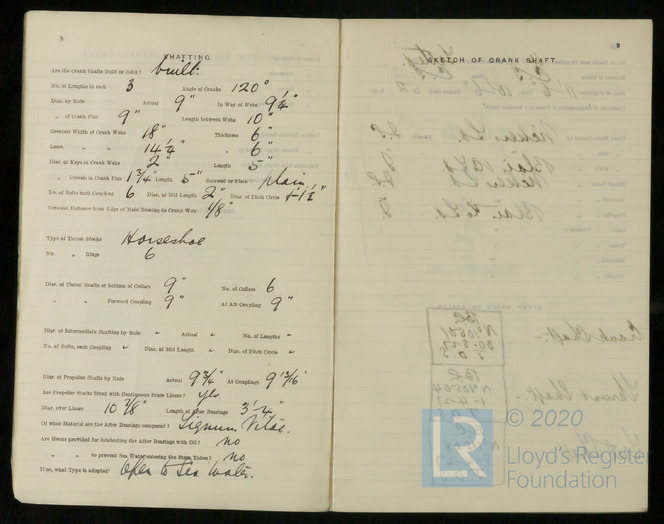 8
SHAFTING.
Are the Crank Shafts Built or Solid? built.
No. of Lengths in each 3 Angle of Cranks 120°
Diar. by Rule Actual 9" In Way of Webs 9¼"
„ of Crank Pins 9" Length between Webs 10"
Greatest Width of Crank Webs 18" Thickness 6"
Least „ „ 14¼" „ 6"
Diar. of Keys in Crank Webs 2" Length 5"
„ Dowels in Crank Pins 1¾" Length 5" Screwed or Plain plain
No. of Bolts each Coupling 6 Diar. at Mid Length 2" Diar. of Pitch Circle
Greatest Distance from Edge of Main Bearing to Crank Web
Type of Thrust Blocks Horseshoe
No. „ Rings 6
Diar. of Thrust Shafts at bottom of Collars 9" No. of Collars 6
„ „ Forward Coupling 9" At Aft Coupling 9"
Diar. of Intermediate Shafting by Rule Actual No. of Lengths
No. of Bolts, each Coupling Diar. at Mid Length Diar. of Pitch Circle
Diar. of Propeller Shafts by Rule Actual 9¾" At Couplings 9 13/16"
Are Propeller Shafts fitted with Continuous Brass Liners? yes.
Diar. over Liners 10⅞" Length of After Bearings 3'-4"
Of what Material are the After Bearings composed? Lignum Vitae.
Are Means provided for lubricating the After Bearings with Oil? no
„ „ to prevent Sea Water entering the Stern Tubes? no
If so, what Type is adopted? Open to Sea Water.
9
SKETCH OF CRANK SHAFT.
© 2020
LR
Lloyd's Register
Foundation